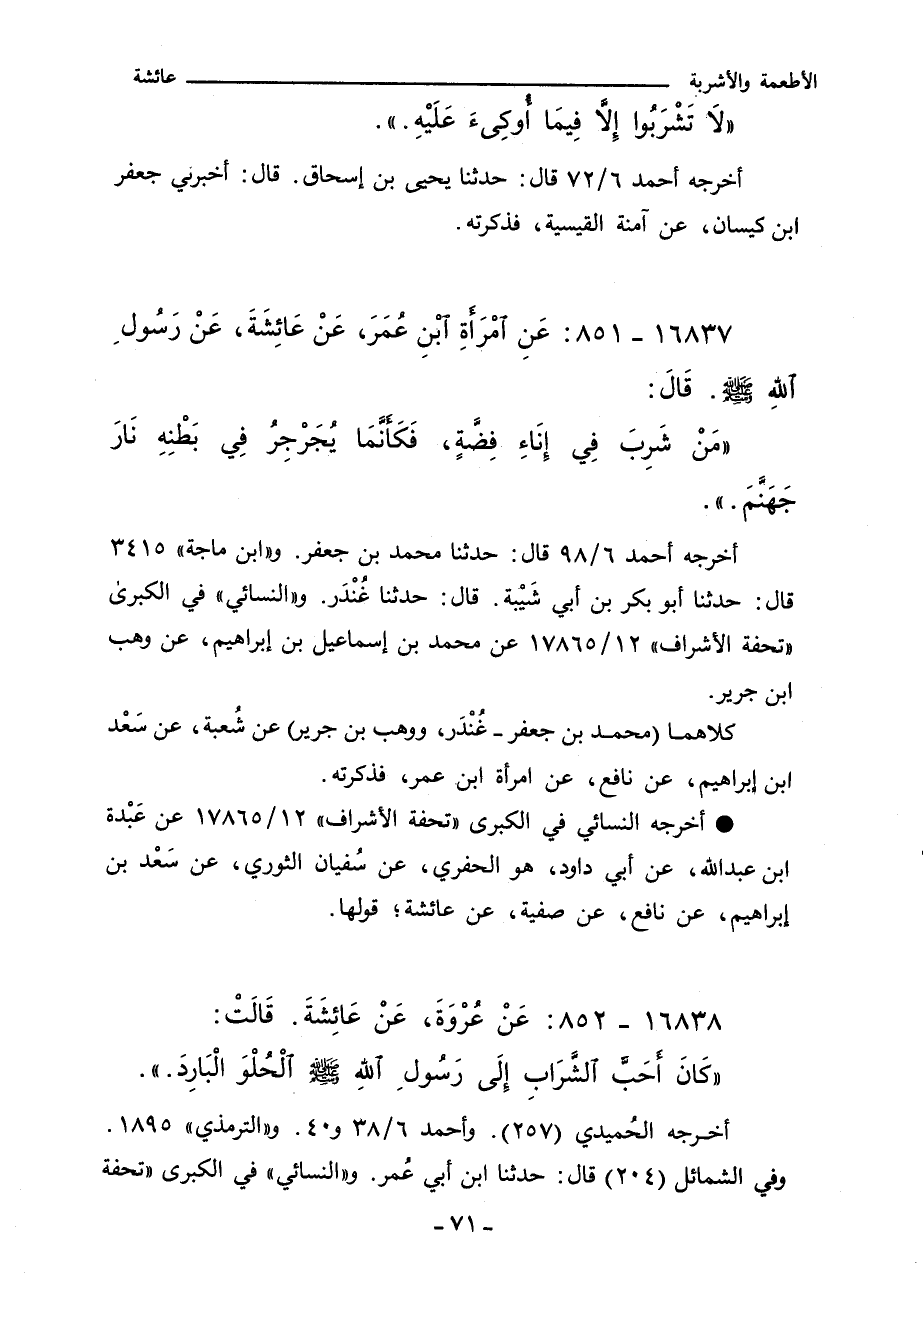 الأطعمة والأشربة ــــــــــــــــــــ عائشة
«لَا تَشْرَبُوا إِلَّا فِيمَا أُوكِىءَ عَلَيْهِ.».
أخرجه أحمد ٧٢/٦ قال: حدثنا يحيى بن إسحاق. قال: أخبرني جعفر
ابن كيسان، عن آمنة القيسية، فذكرته.
١٦٨٣٧ - ٨٥١: عَنِ ٱمْرَأَةِ ٱبْنِ عُمَرَ، عَنْ عَائِشَةَ، عَنْ رَسُولِ
ٱللهِ ﷺ. قَالَ:
«مَنْ شَرِبَ فِي إِنَاءِ فِضَّةٍ، فَكَأَنَّمَا يُجَرْجِرُ فِي بَطْنِهِ نَارَ
جَهَنَّمَ.».
أخرجه أحمد ٩٨/٦ قال: حدثنا محمد بن جعفر. و«ابن ماجة» ٣٤١٥
قال: حدثنا أبو بكر بن أبي شَيْبة. قال: حدثنا غُنْدَر. و«النسائي» في الكبرىٰ
«تحفة الأشراف» ١٧٨٦٥/١٢ عن محمد بن إسماعيل بن إبراهيم، عن وهب
ابن جرير.
كلاهما (محمد بن جعفر - غُنْدَر، ووهب بن جرير) عن شُعبة، عن سَعْد
ابن إبراهيم، عن نافع، عن امرأة ابن عمر، فذكرته.
● أخرجه النسائي في الكبرى «تحفة الأشراف» ١٧٨٦٥/١٢ عن عَبْدة
ابن عبدالله، عن أبي داود، هو الحفري، عن سُفيان الثوري، عن سَعْد بن
إبراهيم، عن نافع، عن صفية، عن عائشة؛ قولها.
١٦٨٣٨ - ٨٥٢: عَنْ عُرْوَةَ، عَنْ عَائِشَةَ. قَالَتْ:
«كَانَ أَحَبَّ ٱلشَّرَابِ إِلَى رَسُولِ ٱللهِ ﷺ ٱلْحُلْوَ الْبَارِدَ.».
أخرجه الحُميدي (٢٥٧). وأحمد ٣٨/٦ و٤٠. و«الترمذي» ١٨٩٥.
وفي الشمائل (٢٠٤) قال: حدثنا ابن أبي عُمر. و«النسائي» في الكبرى «تحفة
- ٧١ -